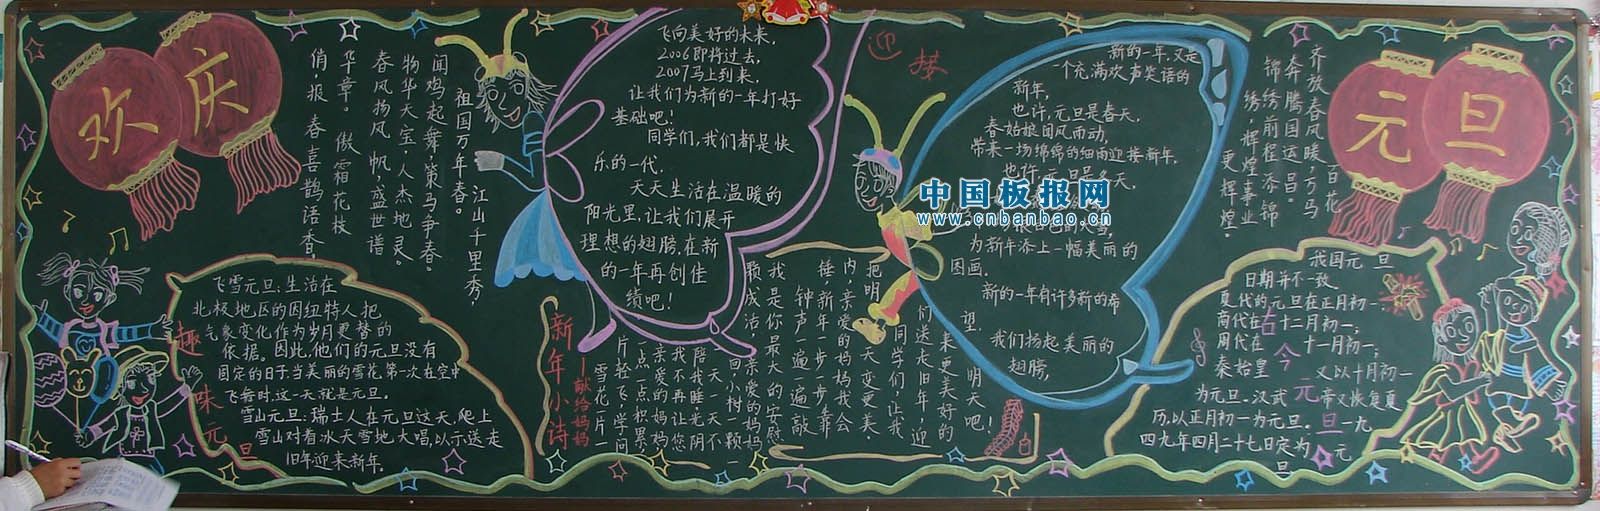 欢
庆
俏，报春喜鹊语香。
华章。傲霜花枝
春风扬风帆，盛世谱
物华天宝，人杰地灵。
闻鸡起舞，策马争春。
祖国万年春。
江山千里秀，
飞向美好的未来，
2006即将过去，
2007马上到来，
让我们为新的一年打好
基础吧！
同学们，我们都是快
乐的一代，
天天生活在温暖的
阳光里，让我们展开
理想的翅膀，在新
的一年再创佳
绩吧！
迎接
新的一年，又是
一个充满欢声笑语的
新年，
也许，元旦是春天，
春姑娘闻风而动，
带来一场绵绵的细雨迎接新年，
也许，元旦是冬天，
中国板报网
www.cnbanbao.cn
为新年添上一幅美丽的
图画。
新的一年有许多新的希
望，
我们扬起美丽的
翅膀，
齐放春风暖，万马
奔腾国运昌。
锦绣前程添锦
绣，辉煌事业
更辉煌。
百花
元
旦
飞雪元旦：生活在
北极地区的因纽特人把
气象变化作为岁月更替的
依据。因此，他们的元旦没有
固定的日子当美丽的雪花第一次在空中
飞舞时，这一天就是元旦。
雪山元旦：瑞士人在元旦这天，爬上
雪山对着冰天雪地大唱，以示送走
旧年迎来新年。
趣味元旦
新年小诗
——献给妈妈
雪花一片一
片轻飞，学问
一点一点积累，
亲爱的妈妈
我不再让您
陪我睡，
一天一天
回小树一颗一
亲爱的妈妈
最大的安慰
我是你
颗成活
钟声一遍一遍敲
新年一步一步靠
内，亲爱的妈妈我会
把明天变更美。
同学们，让我
们送走旧年，迎
来更美好的
明天吧！
古今元旦
我国元旦
日期并不一致
夏代的元旦在正月初一，
商代在十二月初一；
周代在十一月初一；
秦始皇又以十月初一
为元旦。汉武帝又恢复夏
历，以正月初一为元旦。一九
四九年四月二十七日定为元
旦